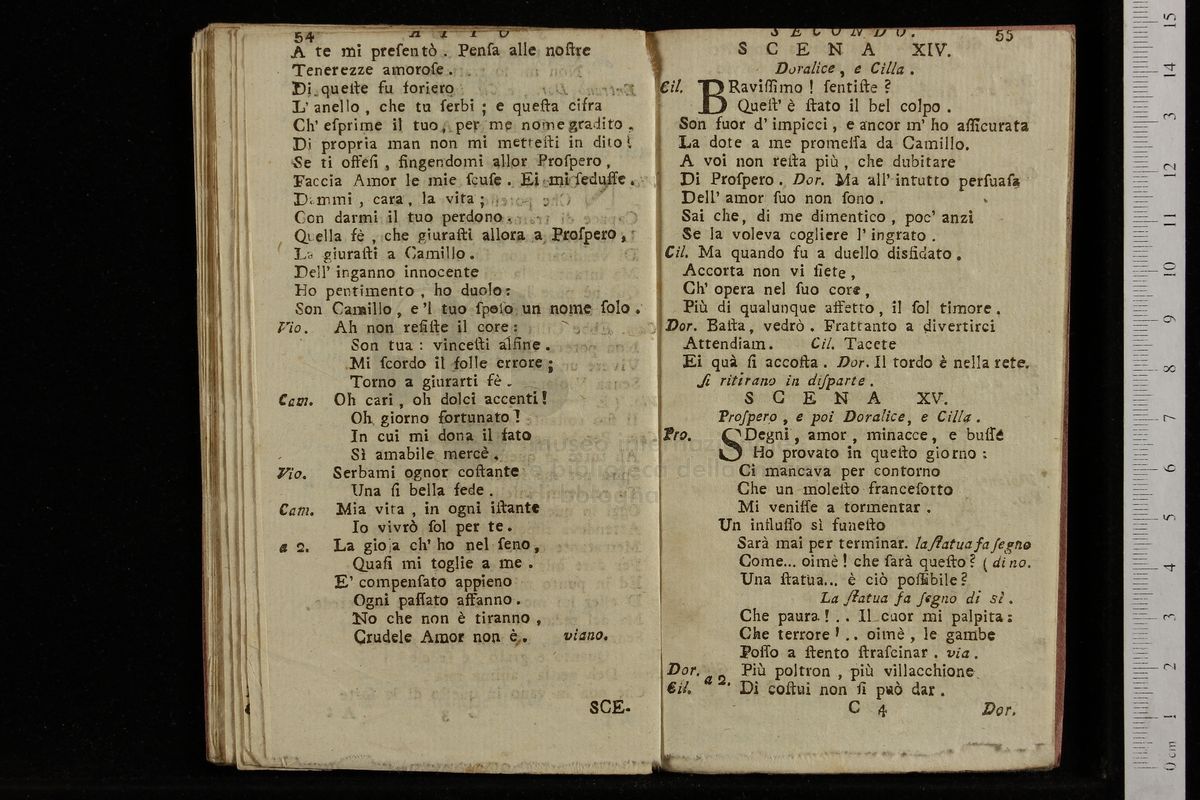 54 ATTO
A te mi preſentò . Penſa alle noſtre
Tenerezze amoroſe .
Di queſte fu foriero
L' anello , che tu ſerbi ; e queſta cifra
Ch' eſprime il tuo, per me nome gradito ,
Di propria man non mi metteſti in dito !
Se ti offeſi , fingendomi allor Proſpero ,
Faccia Amor le mie ſcuſe . Ei mi ſeduſſe .
Dammi , cara , la vita ;
Con darmi il tuo perdono .
Quella fè , che giuraſti allora a Proſpero ,
La giuraſti a Camillo .
Dell' inganno innocente
Ho pentimento , ho duolo :
Son Camillo , e 'l tuo ſpoſo un nome ſolo .
Vio. Ah non reſiſte il core :
Son tua : vinceſti alfine .
Mi ſcordo il folle errore ;
Torno a giurarti fè .
Cam. Oh cari , oh dolci accenti !
Oh giorno fortunato !
In cui mi dona il fato
Sì amabile mercè .
Vio. Serbami ognor coſtante
Una ſi bella fede .
Cam. Mia vita , in ogni iſtante
Io vivrò ſol per te .
a 2. La gioja ch' ho nel ſeno ,
Quaſi mi toglie a me .
E' compenſato appieno
Ogni paſſato affanno .
No che non è tiranno ,
Crudele Amor non è . viano.
SCE-
SECONDO. 55
SCENA XIV.
Doralice , e Cilla .
Cil. BRaviſſimo ! ſentiſte ?
Queſt' è ſtato il bel colpo .
Son fuor d' impicci , e ancor m' ho aſſicurata
La dote a me promeſſa da Camillo.
A voi non reſta più , che dubitare
Di Proſpero . Dor. Ma all' intutto perſuaſa
Dell' amor ſuo non ſono .
Sai che, di me dimentico , poc' anzi
Se la voleva cogliere l' ingrato .
Cil. Ma quando fu a duello disfidato .
Accorta non vi ſiete ,
Ch' opera nel ſuo core ,
Più di qualunque affetto , il ſol timore .
Dor. Baſta, vedrò . Frattanto a divertirci
Attendiam. Cil. Tacete
Ei quà ſi accoſta . Dor. Il tordo è nella rete.
ſi ritirano in diſparte .
SCENA XV.
Proſpero , e poi Doralice, e Cilla .
Pro. SDegni , amor , minacce , e buſſe
Ho provato in queſto giorno :
Ci mancava per contorno
Che un moleſto franceſotto
Mi veniſſe a tormentar .
Un influſſo sì funeſto
Sarà mai per terminar. la ſtatua fa ſegno
Come... oimè ! che ſarà queſto ? ( di no.
Una ſtatua... è ciò poſſibile ?
La ſtatua fa ſegno di sì .
Che paura ! . . Il cuor mi palpita :
Che terrore ! . . oimè , le gambe
Poſſo a ſtento ſtraſcinar . via .
Dor. a 2. Più poltron , più villacchione
Cil. Di coſtui non ſi può dar .
C 4 Dor.
museo internazionale
e biblioteca della
di bologna
0 cm 1 2 3 4 5 6 7 8 9 10 11 12 3 14 15